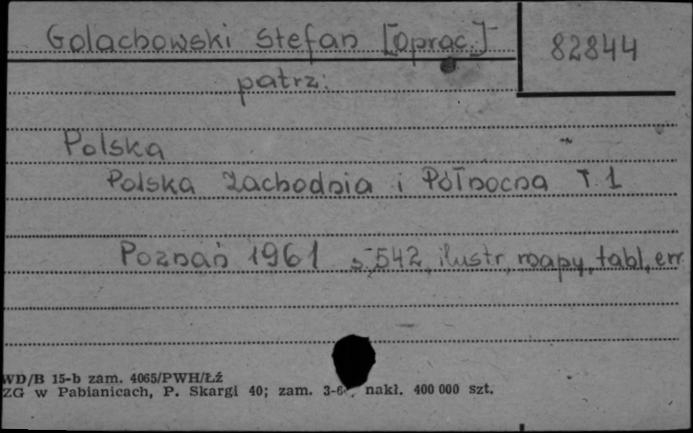 Golachowski Stefan [oprac.]
82844
patrz:
Polska
Polska Zachodnia i Północna T. 1
Poznań 1961 s. 542, ilustr., mapy, tabl., err.
WD/B 15-b zam. 4065/PWH/Łź
ZG w Pabianicach, P. Skargi 40; zam. nakł. 400 000 szt.